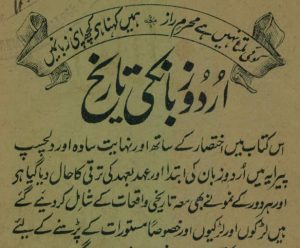 کوئی ملتا نہیں ہے محرم راز ہمیں کہنا ہے کچھ اپنی زبان میں
اُردو زبان کی تاریخ
اس کتاب میں اختصار کے ساتھ اور نہایت سادہ اور دلچسپ
پیرایہ میں اُردو زبان کی ابتدا اور عہد بعہد کی ترقی کا حال دیا گیا ہو
اور ہر دور کے نمونے بھی معہ تاریخی واقعات کے شامل کر دیئے گئے
ہیں لڑکوں اور لڑکیوں اور خصوصاً مستورات کے پڑھنے کے لئے